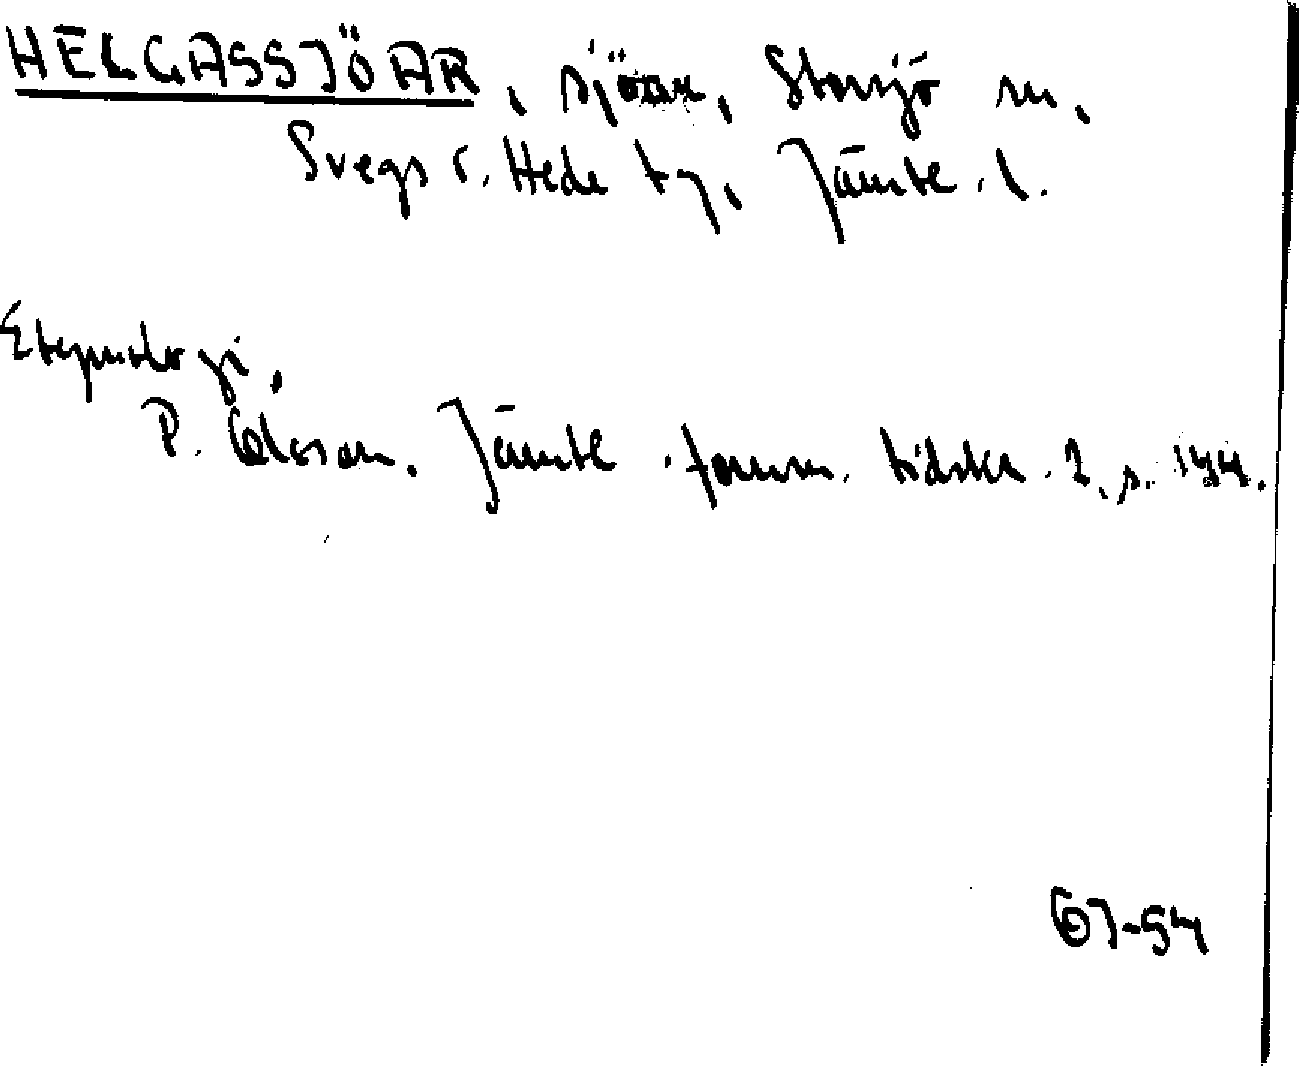 HELGASSJÖAR, sjöar, Storsjö sn,
Svegs o. Hede tg, Jämtl. l.
Etymologi.
P. Olsson. Jämtl. fornm. tidskr. 2, s. 144.